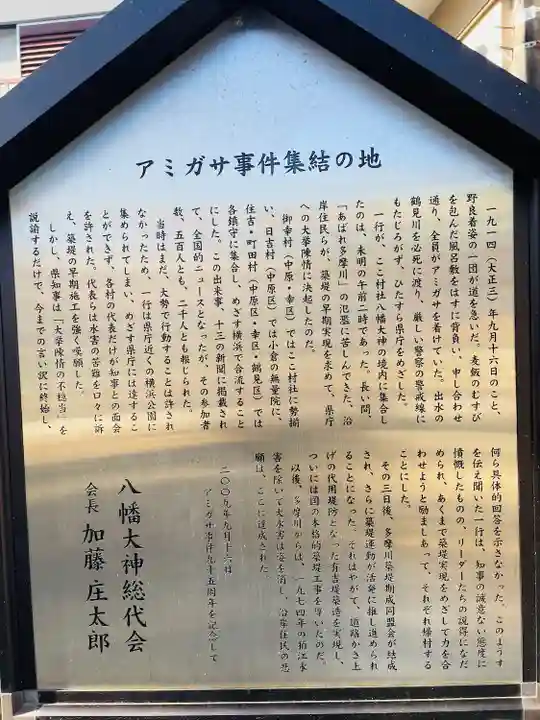 アミガサ事件集結の地
一九一四（大正三）年九月十六日のこと、
野良着姿の一団が道を急いだ。麦飯のむすび
を包んだ風呂敷をはすに背負い、申し合わせ
通り、全員がアミガサを着けていた。出水の
鶴見川を必死に渡り、厳しい警察の警戒線に
もたじろがず、ひたすら県庁をめざした。
一行が、ここ村社八幡大神の境内に集合し
たのは、未明の午前二時であった。長い間、
「あばれ多摩川」の氾濫に苦しんできた、沿
岸住民らが、築堤の早期実現を求めて、県庁
への大挙陳情に決起したのだ。
御幸村（中原・幸区）ではここ村社に勢揃
い、日吉村（中原区）では小倉の無量院に、
住吉・町田村（中原区・幸区・鶴見区）では
各鎮守に集合し、めざす横浜で合流すること
にした。この出来事、十三の新聞に掲載され
て、全国的ニュースとなったが、その参加者
数、五百人とも、二千人とも報じられた。
当時はまだ、大勢で行動することは許され
なかったため、一行は県庁近くの横浜公園に
集められてしまい、めざす県庁には達するこ
とができず、各村の代表だけが知事との面会
を許された。代表らは水害の苦難を口々に訴
え、築堤の早期施工を強く嘆願した。
しかし、県知事は「大挙陳情の不穏当」を
説諭するだけで、今までの言い訳に終始し、
何ら具体的回答を示さなかった。このようす
を伝え聞いた一行は、知事の誠意ない態度に
憤慨したものの、リーダーたちの説得になだ
められ、あくまで築堤実現をめざして力を合
わせようと励ましあって、それぞれ帰村する
ことにした。
その三日後、多摩川築堤期成同盟会が結成
され、さらに築堤運動が活発に推し進められ
ることになった。それはやがて、道路かさ上
げの代用堤防となった有吉堤築造を実現し、
ついには国の本格的築堤工事を導いたのだ。
以後、多摩川からは、一九七四年の狛江水
害を除いて大水害は姿を消し、沿岸住民の悲
願は、ここに達成された。
二〇〇九年九月十六日
アミガサ事件九十五周年を記念して
八幡大神総代会
会長 加藤庄太郎